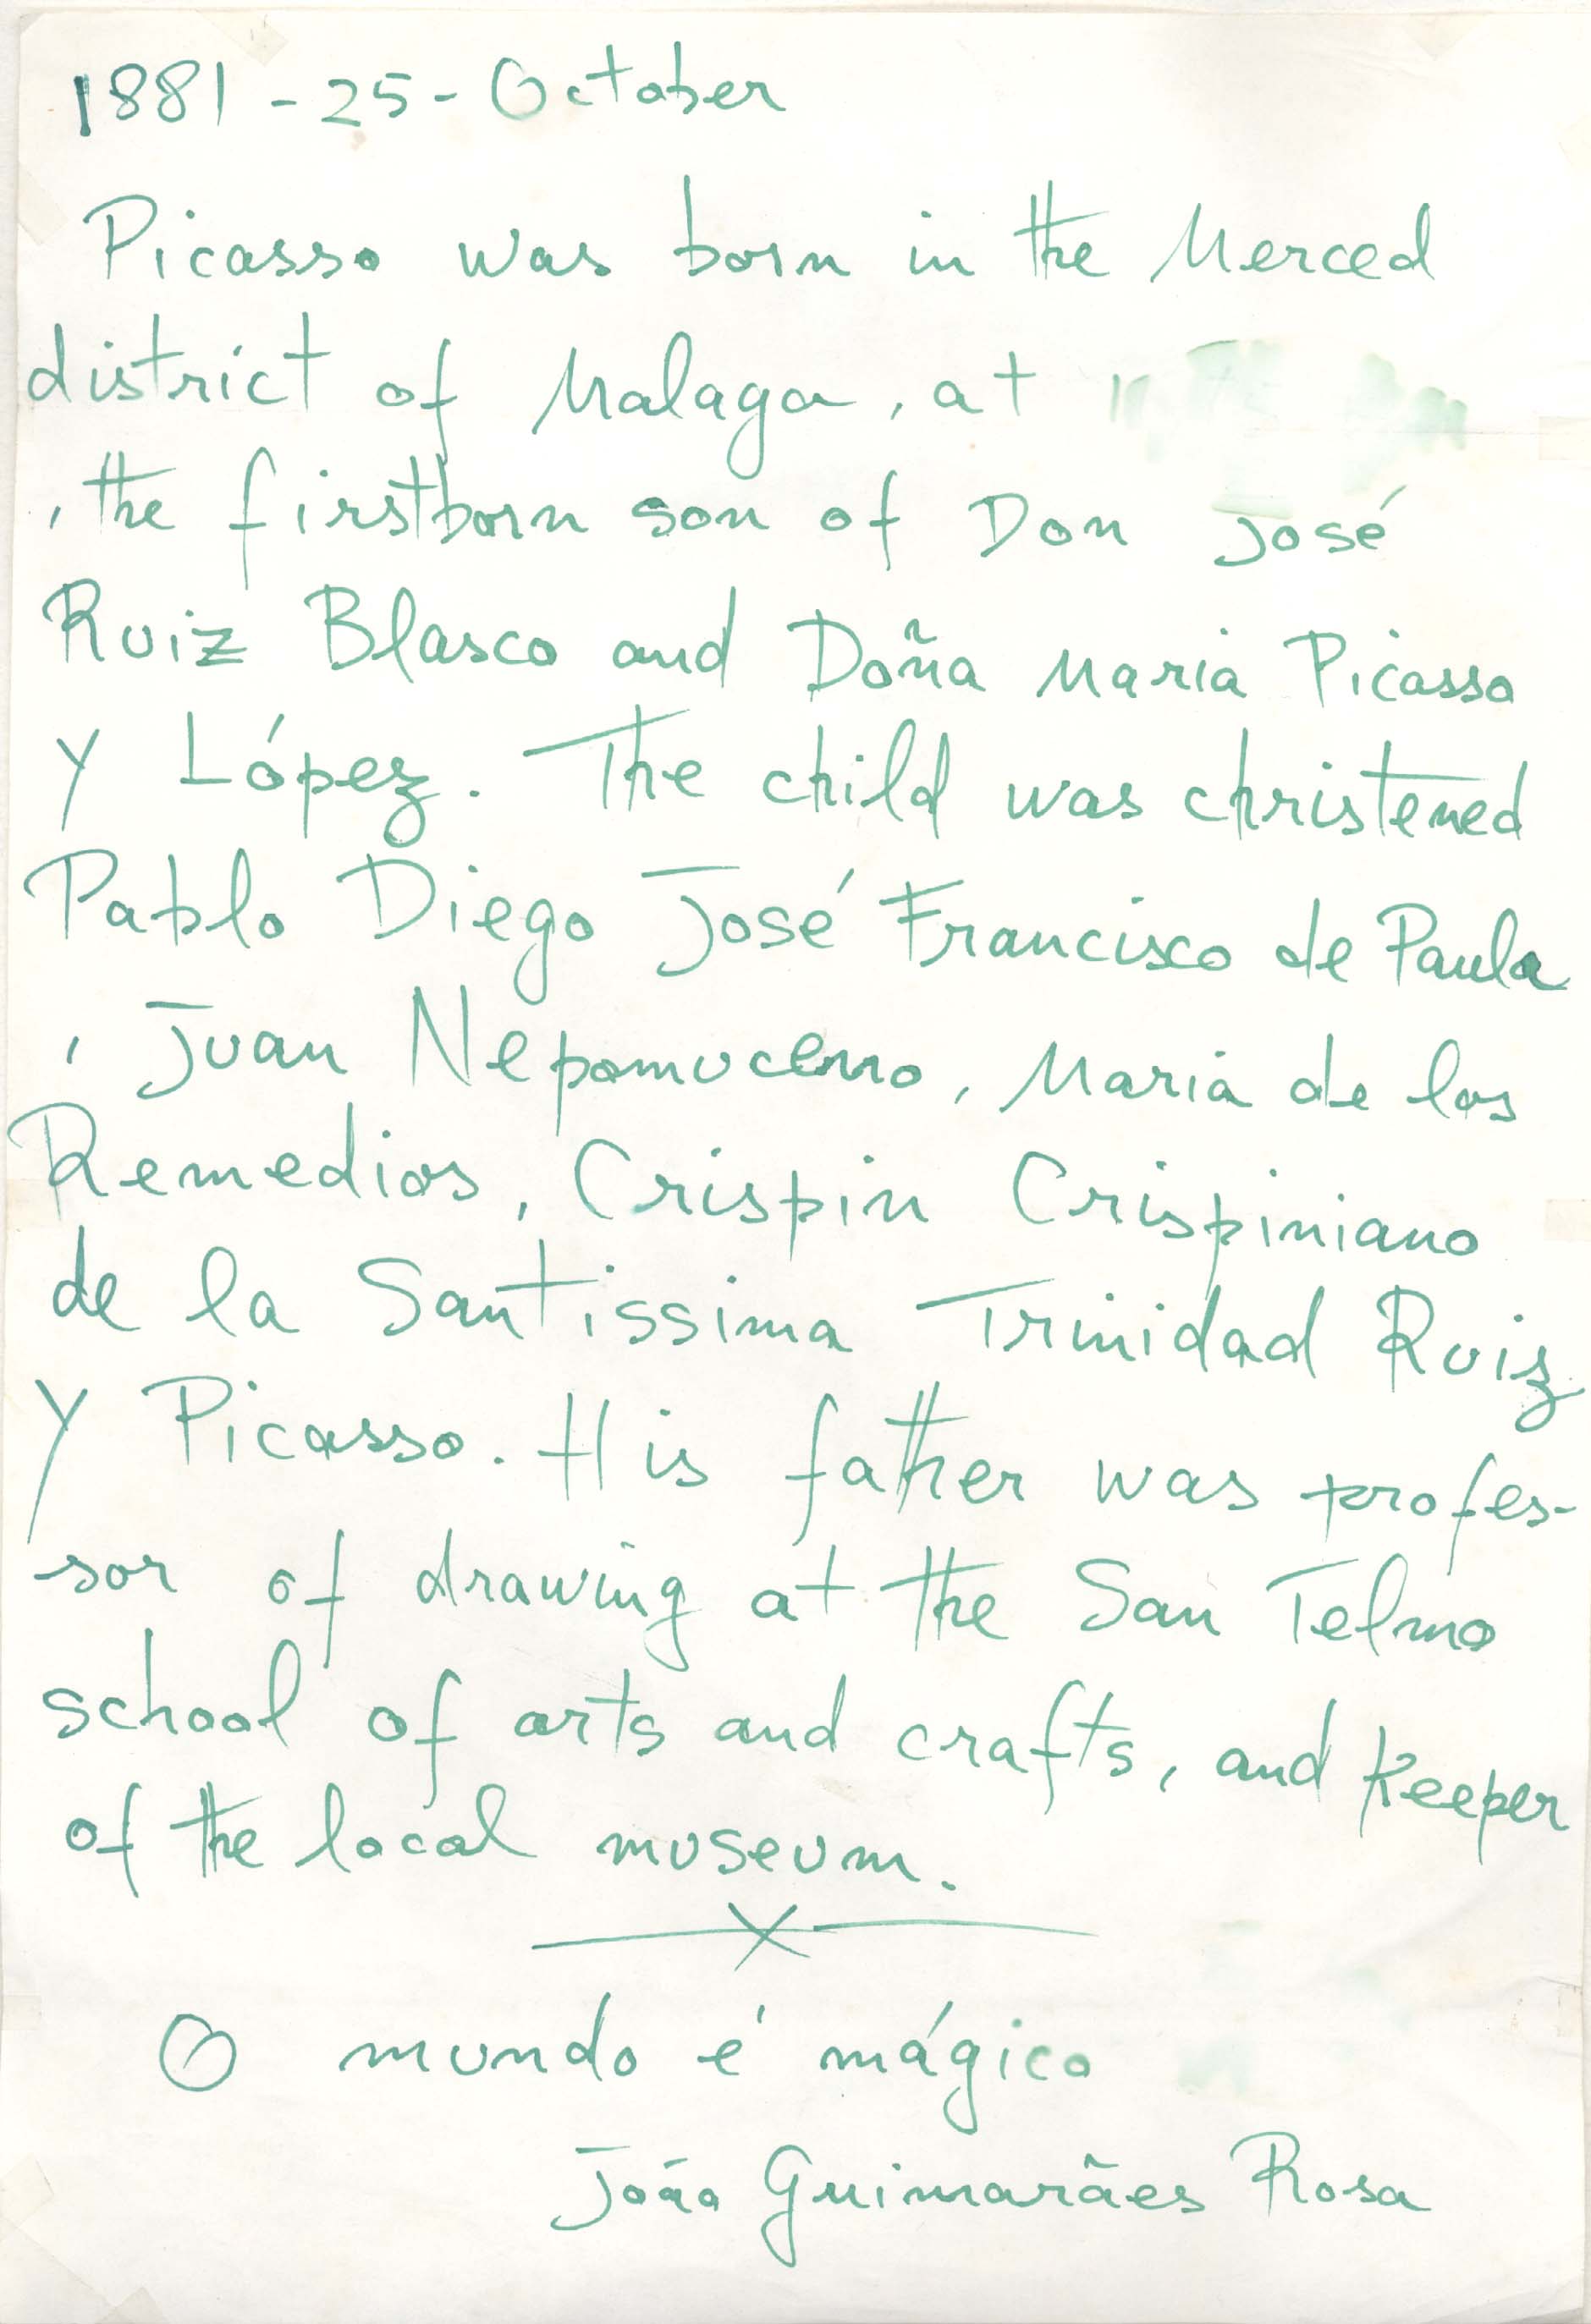 1881 - 25 - October
Picasso was born in the Merced
district of Malaga, at
, the firstborn son of Don José
Ruiz Blasco and Doña Maria Picasso
y López. The child was christened
Pablo Diego José Francisco de Paula
, Juan Nepomuceno, Maria de los
Remedios, Crispin Crispiniano
de la Santissima Trinidad Ruiz
y Picasso. His father was profes-
sor of drawing at the San Telmo
school of arts and crafts, and keeper
of the local museum.
O mundo é mágico
João Guimarães Rosa